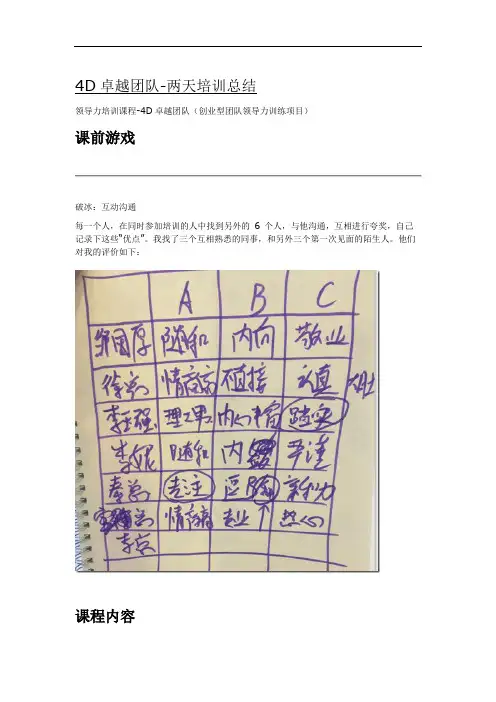 4D 卓越团队-两天培训总结
领导力培训课程-4D 卓越团队（创业型团队领导力训练项目）
课前游戏
破冰：互动沟通
每一个人，在同时参加培训的人中找到另外的 6 个人，与他沟通，互相进行夸奖，自己
记录下这些“优点”。我找了三个互相熟悉的同事，和另外三个第一次见面的陌生人。他们
对我的评价如下：
A B C
随和 内向 敬业
情商高 直接 认真
理工男 内心丰富 踏实
李妮 随和 内
专注 亲和力
情商高 专业 ↑ 热心
课程内容